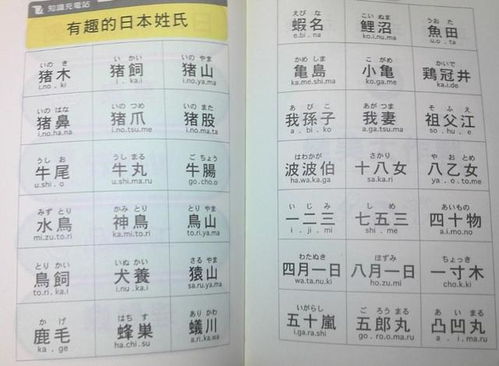 知識充電站
有趣的日本姓氏
いの き　い かい　いの やま
猪木　猪飼　猪山
i.no . ki　i . ka.i　i.no.ya.ma
いの はな　いの つめ　いの また
猪鼻　猪爪　猪股
i.no.ha.na　i.no.tsu.me　i.no.ma.ta
うし お　うし まる　ご ちょう
牛尾　牛丸　牛腸
u.shi . o　u.shi.ma.ru　go.cho.o
みず とり　かみ とり　とり やま
水鳥　神鳥　鳥山
mi.zu.to.ri　ka.mi.to.ri　to.ri.ya.ma
とり かい　いぬ かい　さる やま
鳥飼　犬養　猿山
to.ri.ka.i　i.nu.ka.i　sa.ru.ya.ma
か げ　はち す　あり かわ
鹿毛　蜂巣　蟻川
ka . ge　ha.chi.su　a.ri.ka.wa
えび な　こい ぬま　うお た
蝦名　鯉沼　魚田
e.bi.na　ko.i.nu.ma　u.o.ta
かめ しま　こ がめ　かいで
亀島　小亀　鶏冠井
ka.me.shi.ma　ko.ga.me　ka.i.de
あ び こ　あが つま　そ ふ え
我孫子　我妻　祖父江
a . bi . ko　a.ga.tsu.ma　so . hu . e
はわかが　さかり　や おと め
波波伯　十八女　八乙女
ha.wa.ka.ga　sa.ka.ri　ya . o.to . me
い じ み　し め　あいもの
一二三　七五三　四十物
i . ji . mi　shi . me　a.i.mo.no
わたぬき　ほずみ　ちょっき
四月一日　八月一日　一寸木
wa.ta.nu.ki　ho.zu.mi　cho.k.ki
いがらし　ご ろう まる　あ い まる
五十嵐　五郎丸　凸凹丸
i.ga.ra.shi　go.ro.o.ma.ru　a.i.ma.ru